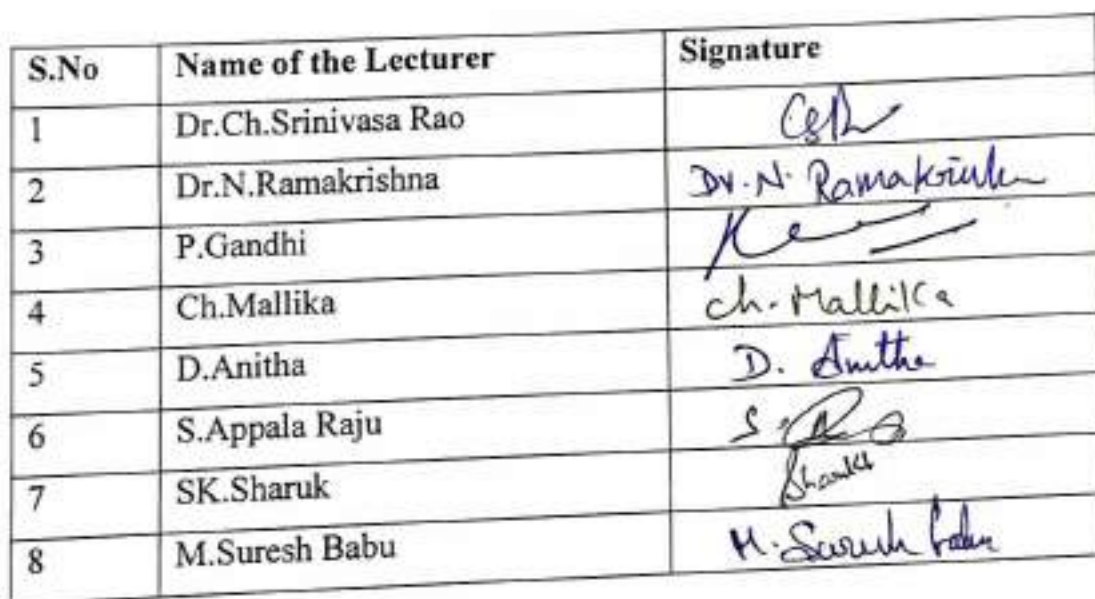 S.No Name of the Lecturer Signature
1 Dr.Ch.Srinivasa Rao
2 Dr.N.Ramakrishna Dr.N. Ramakrishna
3 P.Gandhi
4 Ch.Mallika Ch. Mallika
5 D.Anitha D. Anitha
6 S.Appala Raju S.
7 SK.Sharuk
8 M.Suresh Babu M. Suresh Babu